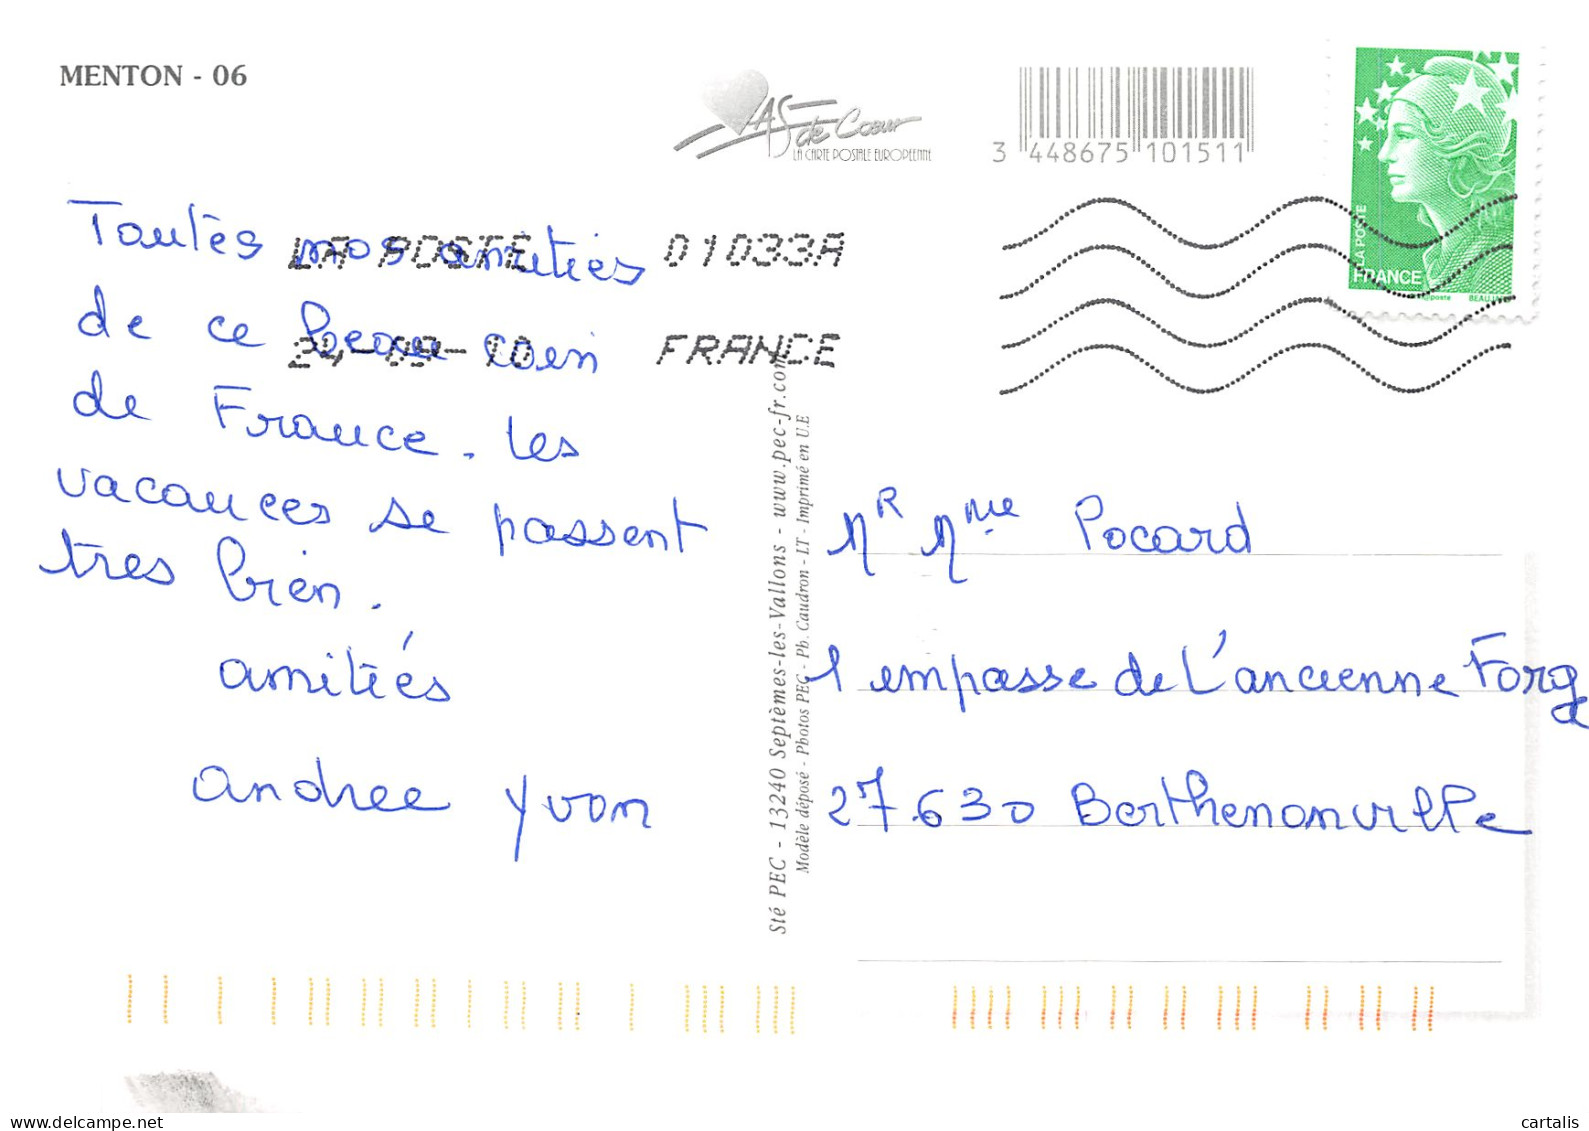 MENTON - 06
AS de Cœur
LA CARTE POSTALE EUROPEENNE
3 448675 101511
LA POSTE
FRANCE
BEAUJARD
LA POSTE 01033A
24-09-10 FRANCE
Toutes nos amitiés
de ce beau coin
de France. les
vacances se passent
tres bien.
amitiés
andree yvon
Sté PEC - 13240 Septèmes-les-Vallons - www.pec-fr.com
Modèle déposé - Photos PEC - Pb. Caudron - LT - Imprimé en U.E
MR Mme Pocard
1 empasse de L'ancienne Forge
27.630 Berthenonville
www.delcampe.net
cartalis